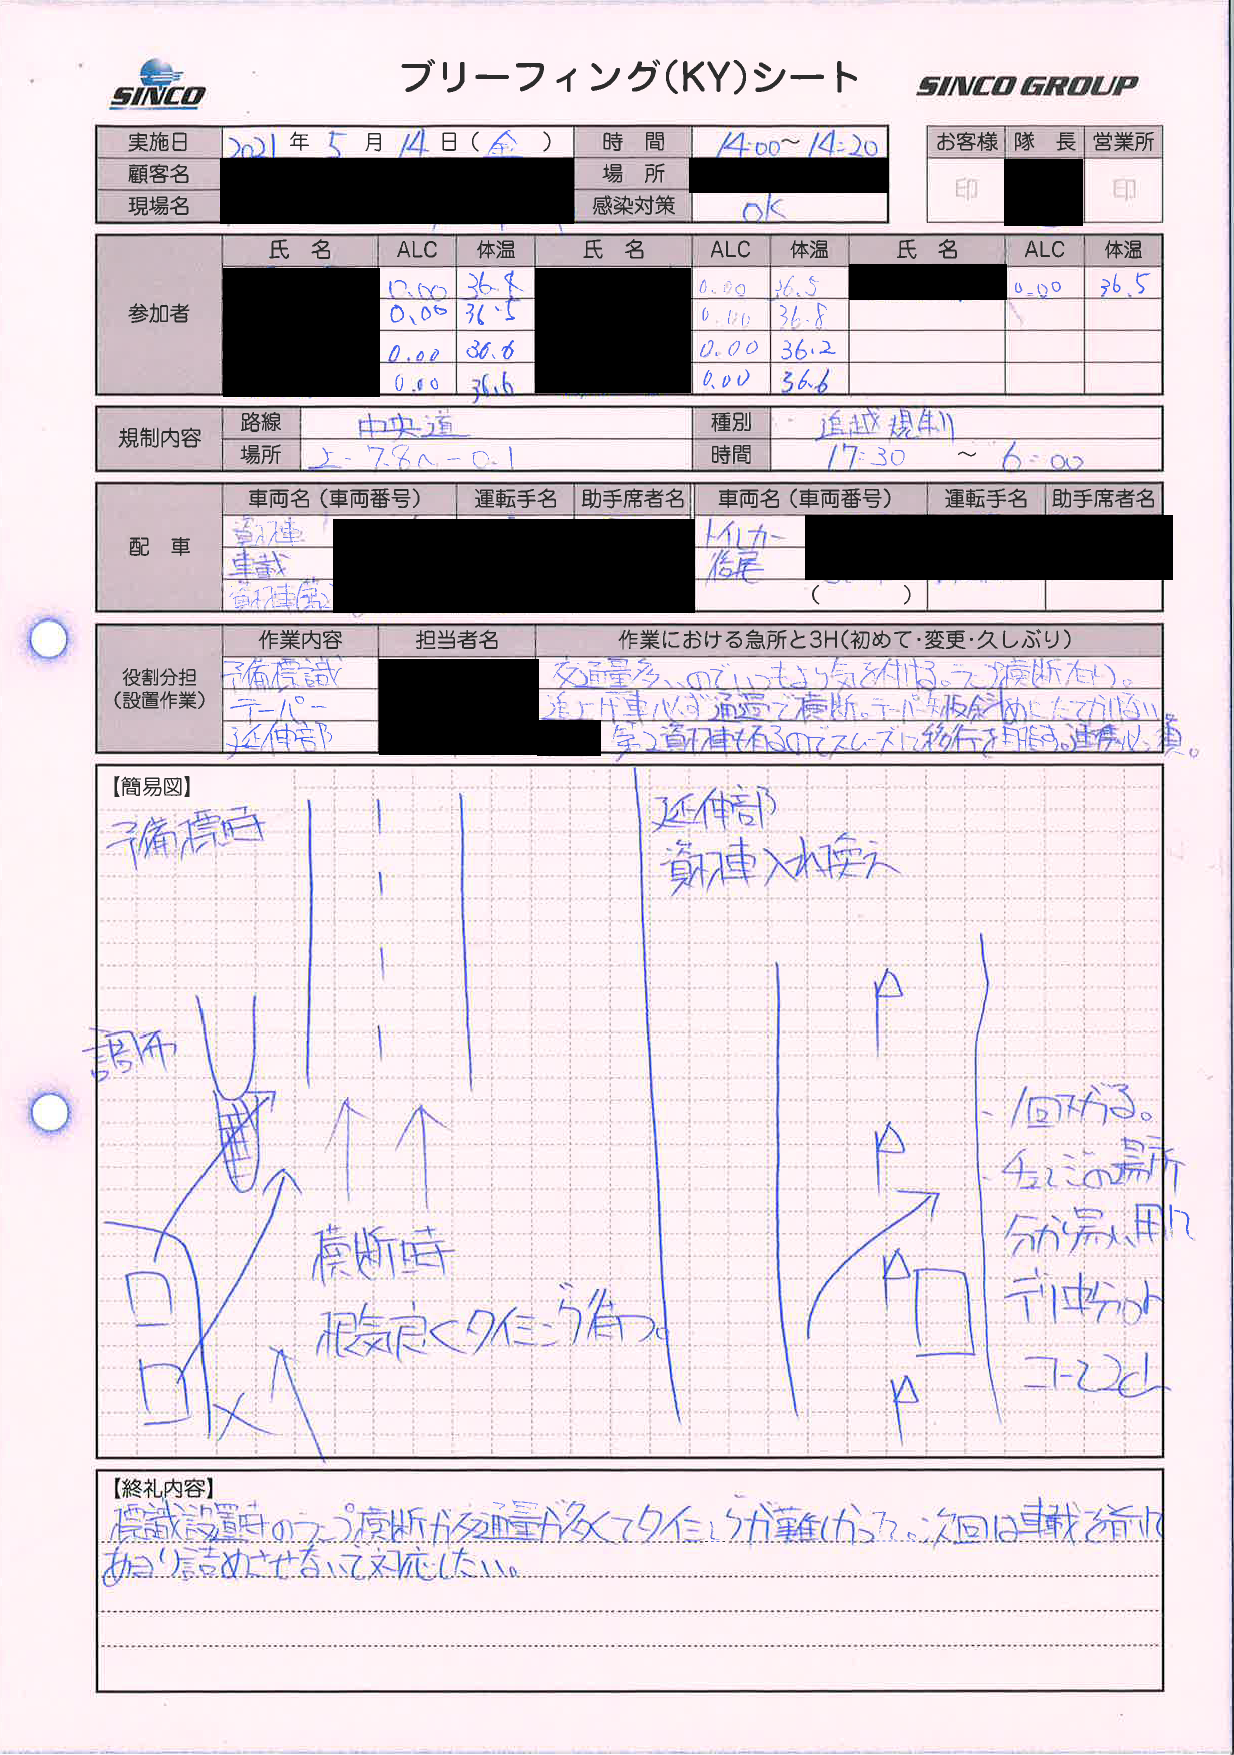 SINCO
ブリーフィング(KY)シート
SINCO GROUP
実施日 2021 年 5 月 14 日 ( 金 ) 時 間 14:00~14:20
お客様 隊 長 営業所
顧客名 場 所
印 印
現場名 感染対策 OK
参加者
氏 名 ALC 体温 氏 名 ALC 体温 氏 名 ALC 体温
0.00 36.8 0.00 36.5 0.00 36.5
0.00 36.5 0.00 36.8
0.00 36.6 0.00 36.2
0.00 36.6 0.00 36.6
規制内容
路線 中央道 種別 追越規制
場所 上-7.8~-0.1 時間 17:30 ~ 6:00
配 車
車両名(車両番号) 運転手名 助手席者名 車両名(車両番号) 運転手名 助手席者名
資材車 トイレカー
車載 後尾
資材車(第2 ( )
役割分担
(設置作業)
作業内容 担当者名 作業における急所と3H(初めて・変更・久しぶり)
予備標識 交通量多いのでいつもより気を付ける。ランプ横断あり。
テーパー 追上げ車必ず通過で横断。テーパー矢板斜めにたてかけない
延伸部 第2資材車も有るのでスムーズに移行を目指す。連携必須。
【簡易図】
予備標時
延伸部
資材車入れ換え
調布
横断時
根気良くタイミング待つ。
・1回下がる。
・チェンジの場所
分かり易い用に
デリ中分の外
コーン2しし
【終礼内容】
標識設置時のランプ横断が交通量が多くてタイミングが難しかった。次回は車載を前に
あまり詰めさせないで対応したい。